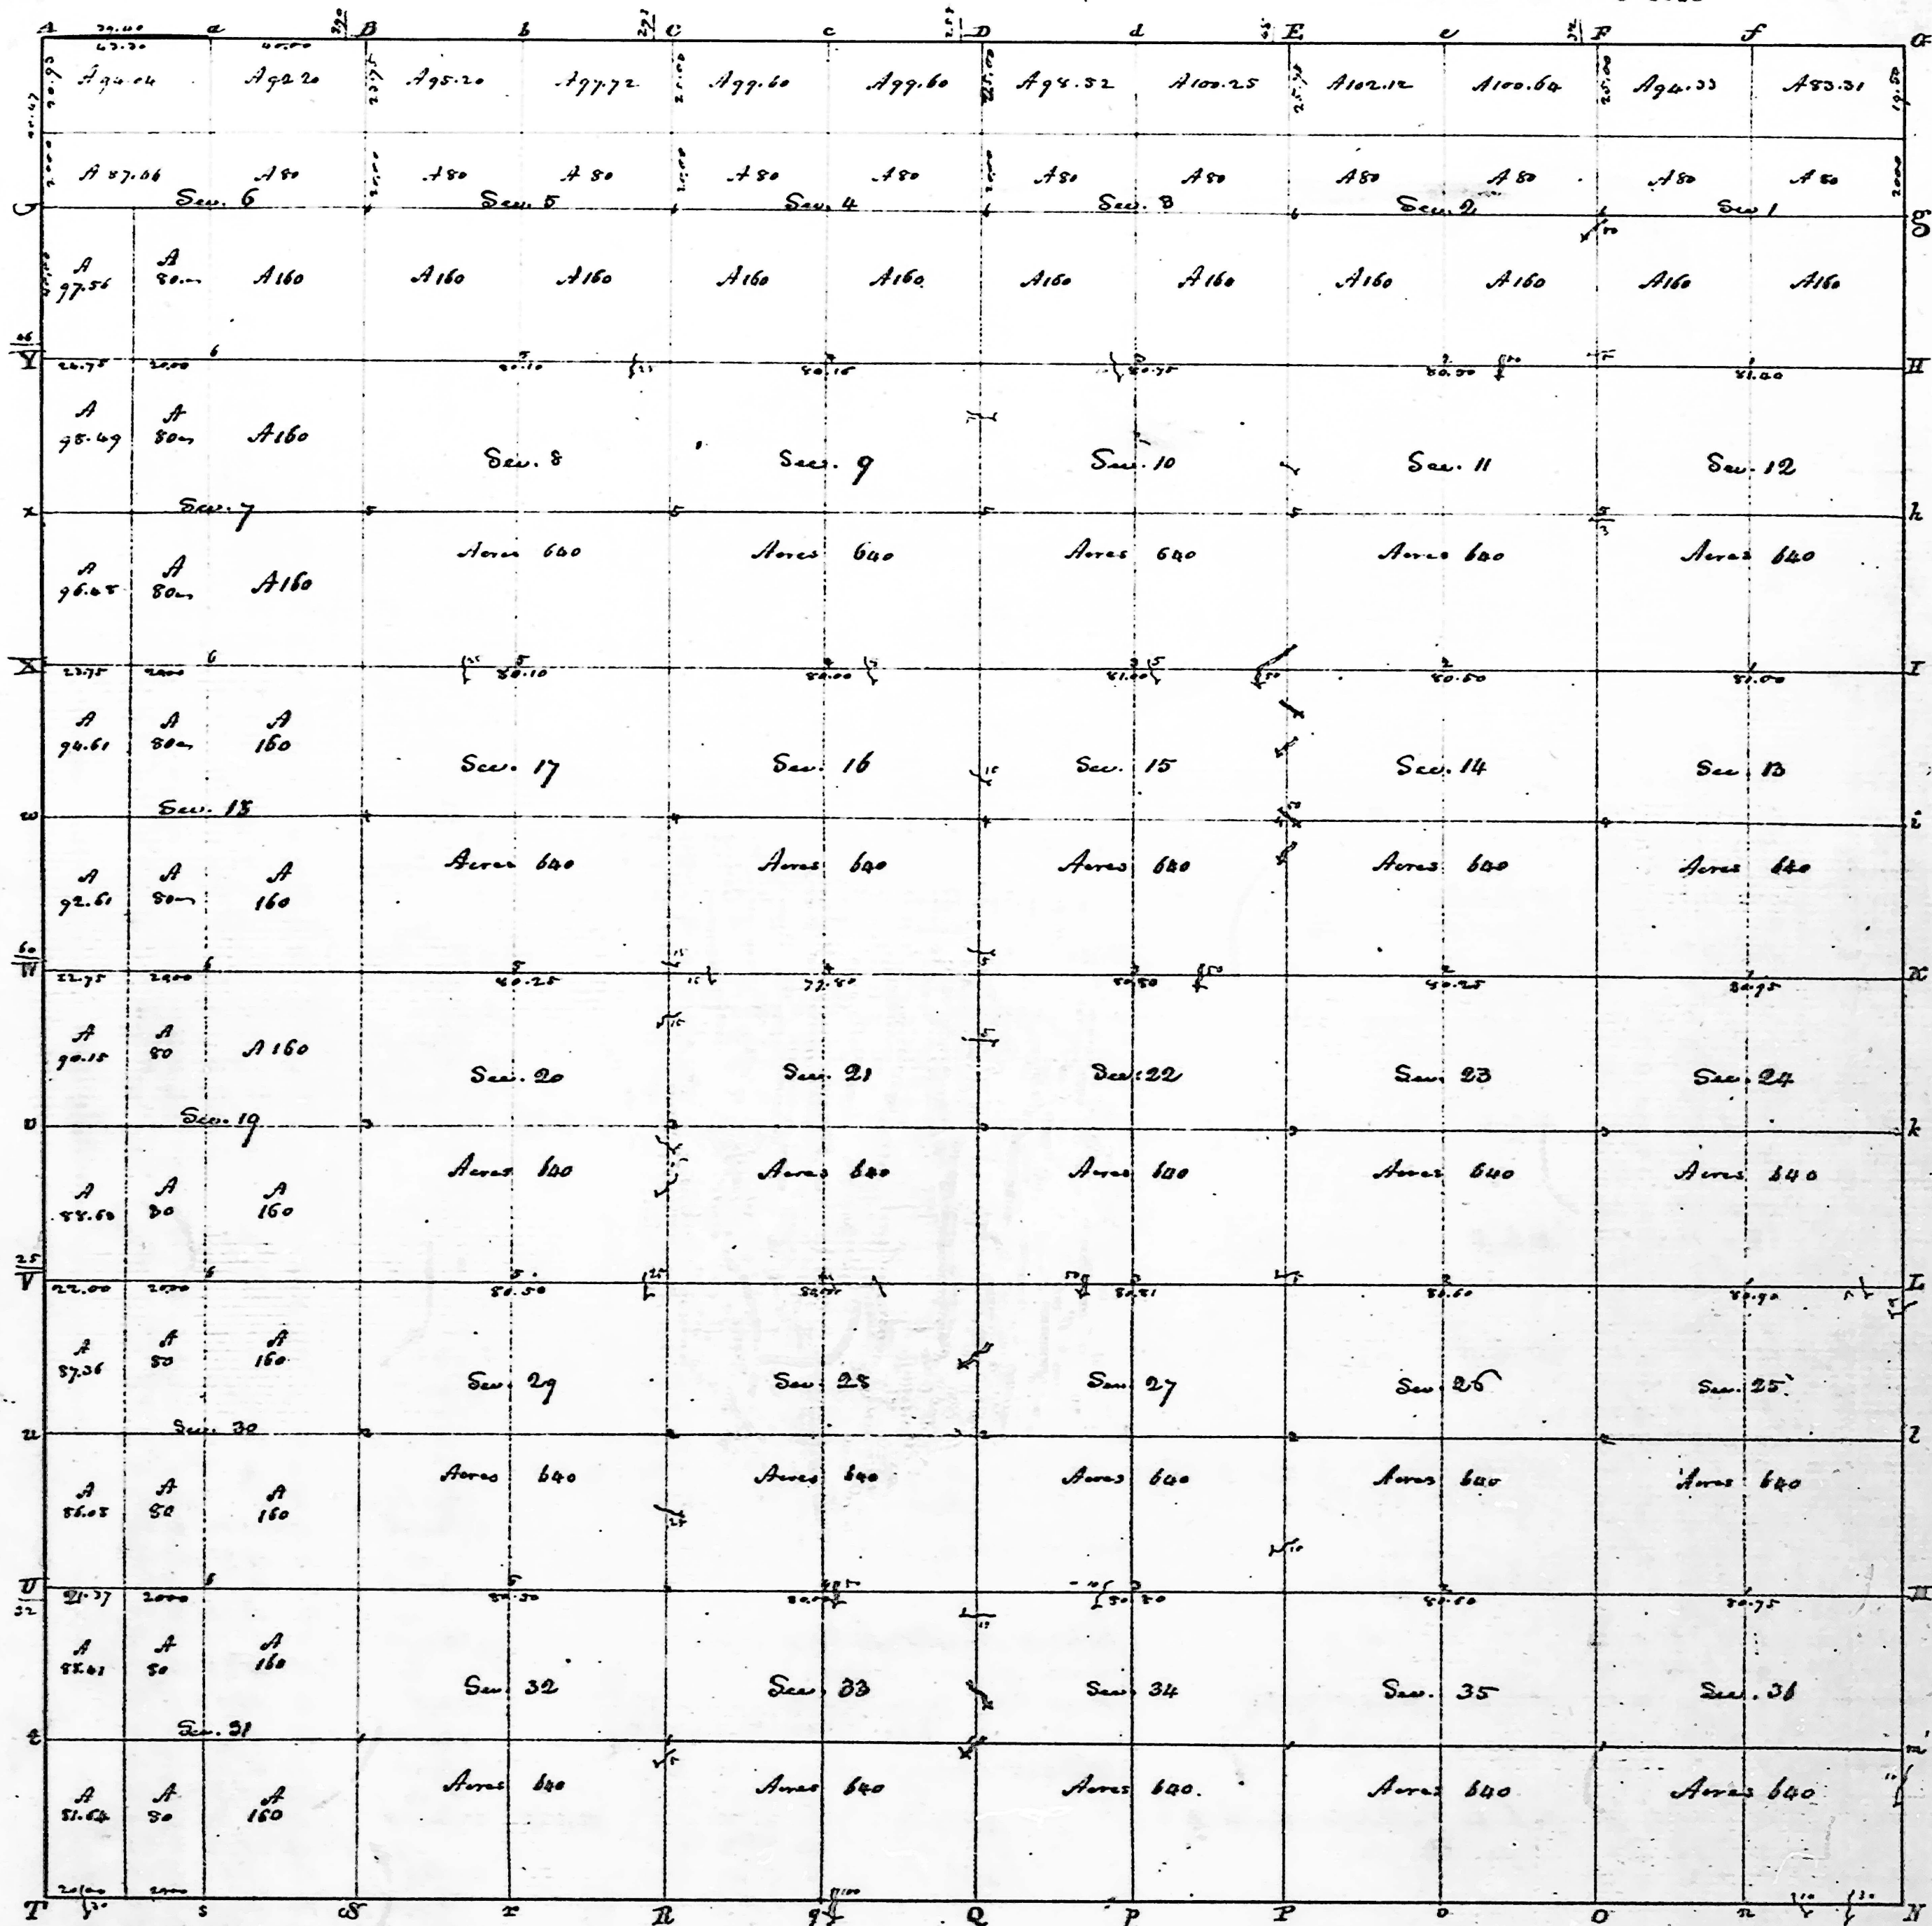 A a B b C c D d E e F f G
A 94.04 A 92.20 A 95.20 A 97.72 A 99.60 A 99.60 A 98.52 A 100.25 A 102.12 A 100.64 A 94.33 A 83.31
A 87.06 A 80 A 80 A 80 A 80 A 80 A 80 A 80 A 80 A 80 A 80 A 80
Sec. 6 Sec. 5 Sec. 4 Sec. 3 Sec. 2 Sec 1
g
A A
97.56 80 A 160 A 160 A 160 A 160 A 160 A 160 A 160 A 160 A 160 A 160 A 160
Y 24.75 20.00 6 80.10 80.15 80.75 80.50 H
A A
98.49 80 A 160
Sec. 8 Sec. 9 Sec. 10 Sec. 11 Sec. 12
x Sec. 7 5 5 5 5 5 h
Acres 640 Acres 640 Acres 640 Acres 640 Acres 640
A A
96.48 80 A 160
X 23.75 20.00 6 80.10 80.00 81.00 80.50 81.00 I
A A A
94.61 80 160
Sec. 17 Sec. 16 Sec. 15 Sec. 14 Sec. 13
w Sec. 18 4 4 4 4 4 i
Acres 640 Acres 640 Acres 640 Acres 640 Acres 640
A A A
92.61 80 160
W 22.75 20.00 6 80.25 79.80 80.80 80.25 80.95 K
A A
90.15 80 A 160
Sec. 20 Sec. 21 Sec. 22 Sec. 23 Sec. 24
v Sec. 19 3 3 3 3 3 k
Acres 640 Acres 640 Acres 640 Acres 640 Acres 640
A A A
88.60 80 160
25
V 22.00 20.00 6 80.50 80.81 80.60 80.90 L
A A A
87.36 80 160
Sec. 29 Sec. 28 Sec. 27 Sec. 26 Sec. 25
u Sec. 30 2 2 2 2 2 l
Acres 640 Acres 640 Acres 640 Acres 640 Acres 640
A A A
86.08 80 160
U 21.37 20.00 6 80.50 80.00 80.80 80.60 80.75 M
32
A A A
80 160
Sec. 32 Sec. 33 Sec. 34 Sec. 35 Sec. 36
t Sec. 31 m
Acres 640 Acres 640 Acres 640 Acres 640 Acres 640
A A A
81.64 80 160
T s S r R q Q p P o O n N